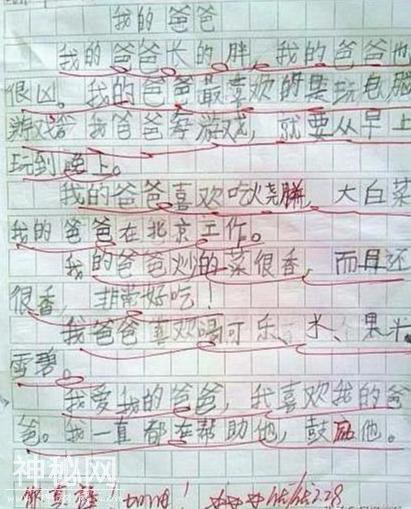 我的爸爸
我的爸爸长的胖，我的爸爸也
很凶。我的爸爸最喜欢的是玩电脑
游戏。我爸爸 游戏，就要从早上
玩到晚上。
我的爸爸喜欢吃烧 ，大白菜
我的爸爸在北京工作。
我的爸爸炒的菜很香，而且还
很香，非常好吃！
我爸爸喜欢喝可乐、水、果
雪碧。
我爱我的爸爸，我喜欢我的爸
爸。我一直都在帮助他，鼓励他。
神秘网
你真棒，加油！